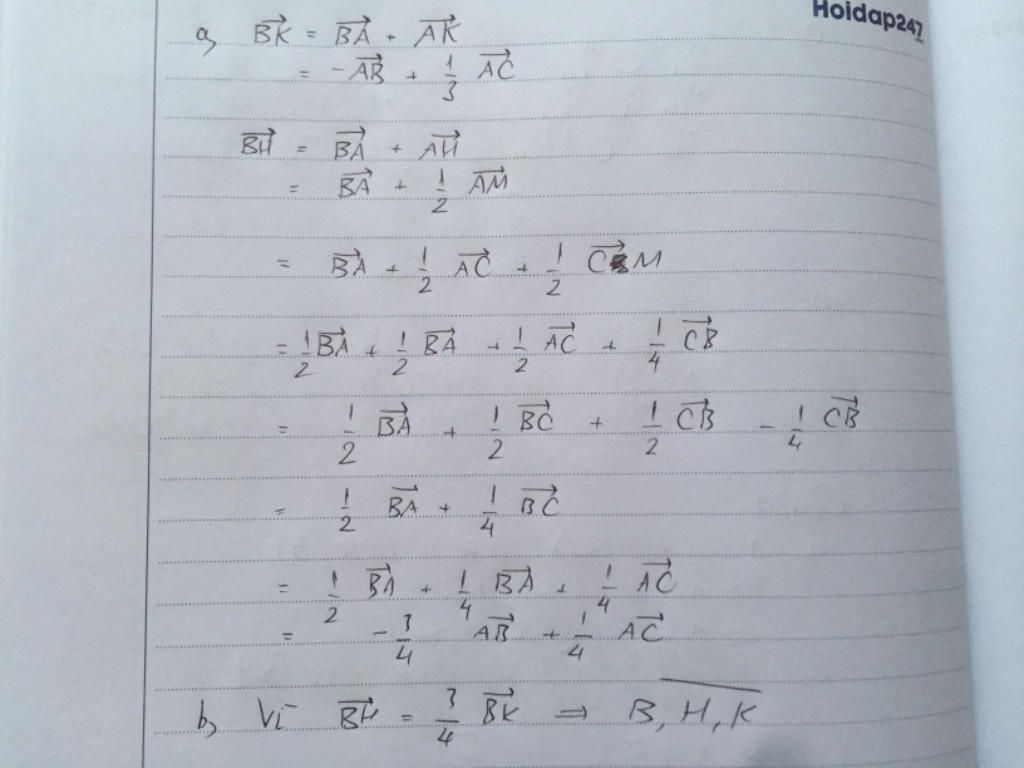 Hoidap247
a, BK⃗ = BA⃗ + AK⃗
= -AB⃗ + 1/3 AC⃗
BH⃗ = BA⃗ + AH⃗
= BA⃗ + 1/2 AM⃗
= BA⃗ + 1/2 AC⃗ + 1/2 CM⃗
= 1/2 BA⃗ + 1/2 BA⃗ + 1/2 AC⃗ + 1/4 CB⃗
= 1/2 BA⃗ + 1/2 BC⃗ + 1/2 CB⃗ - 1/4 CB⃗
= 1/2 BA⃗ + 1/4 BC⃗
= 1/2 BA⃗ + 1/4 BA⃗ + 1/4 AC⃗
= -3/4 AB⃗ + 1/4 AC⃗
b, Vì BH⃗ = 3/4 BK⃗ ⇒ B, H, K